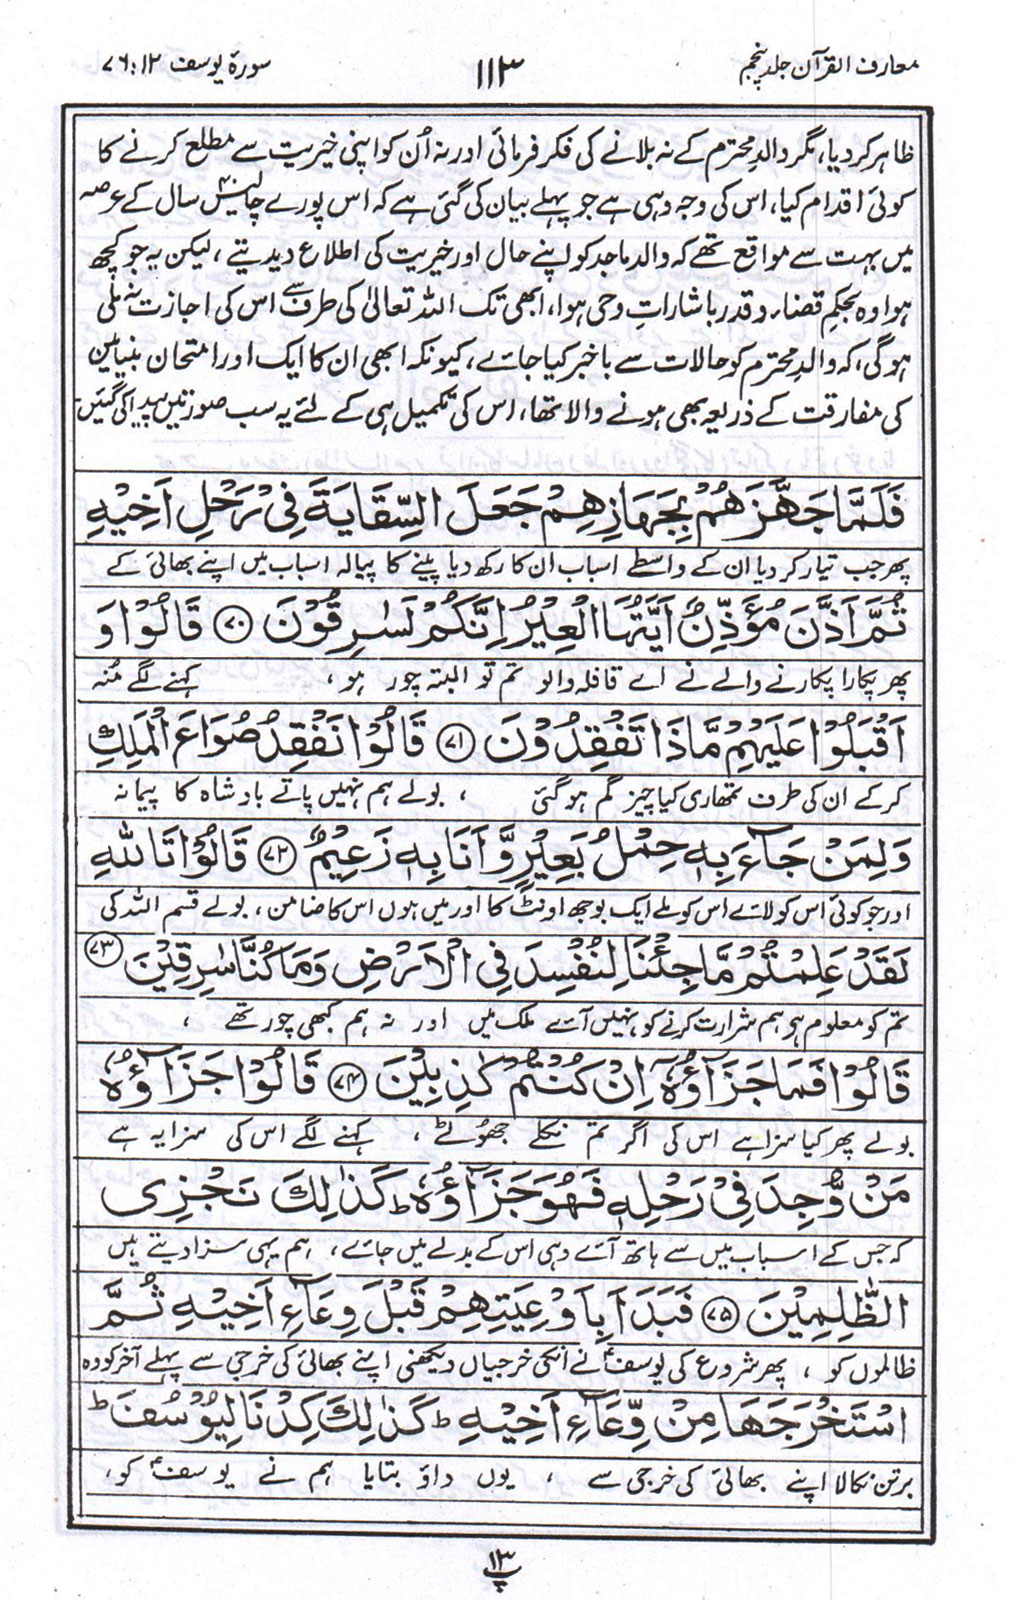 معارف القرآن جلد پنجم
۱۱۳
سورۂ یوسف ۱۲: ۷۶
ظاہر کردیا، مگر والدِ محترم کے نہ بلانے کی فکر فرمائی اور نہ اُن کو اپنی خیریت سے مطلع کرنے کا
کوئی اقدام کیا، اس کی وجہ وہی ہے جو پہلے بیان کی گئی ہے کہ اس پورے چالیس ۴۰ سال کے عرصہ
میں بہت سے مواقع تھے کہ والد ماجد کو اپنے حال اور خیریت کی اطلاع دیدیتے، لیکن یہ جو کچھ
ہوا وہ بحکمِ قضاء و قدر باشاراتِ وحی ہوا، ابھی تک اللہ تعالیٰ کی طرف سے اس کی اجازت نہ ملی
ہوگی، کہ والدِ محترم کو حالات سے باخبر کیا جائے، کیونکہ ابھی ان کا ایک اور امتحان بنیامین
کی مفارقت کے ذریعہ بھی ہونے والا تھا، اس کی تکمیل ہی کے لئے یہ سب صورتیں پیدا کی گئیں
فَلَمَّا جَهَّزَهُمْ بِجَهَازِهِمْ جَعَلَ السِّقَايَةَ فِيْ رَحْلِ اَخِيْهِ
پھر جب تیار کردیا ان کے واسطے اسباب ان کا رکھ دیا پینے کا پیالہ اسباب میں اپنے بھائی کے
ثُمَّ اَذَّنَ مُؤَذِّنٌ اَيَّتُهَا الْعِيْرُ اِنَّكُمْ لَسٰرِقُوْنَ ﴿۷۰﴾ قَالُوْا وَ
پھر پکارا پکارنے والے نے اے قافلہ والو تم تو البتہ چور ہو، کہنے لگے مُنہ
اَقْبَلُوْا عَلَيْهِمْ مَّاذَا تَفْقِدُوْنَ ﴿۷۱﴾ قَالُوْا نَفْقِدُ صُوَاعَ الْمَلِكِ
کرکے ان کی طرف تمھاری کیا چیز گم ہوگئی، بولے ہم نہیں پاتے بادشاہ کا پیمانہ
وَلِمَنْ جَآءَ بِهٖ حِمْلُ بَعِيْرٍ وَّاَنَا بِهٖ زَعِيْمٌ ﴿۷۲﴾ قَالُوْا تَاللّٰهِ
اور جو کوئی اس کو لائے اس کو ملے ایک بوجھ اونٹ کا اور میں ہوں اس کا ضامن، بولے قسم اللہ کی
لَقَدْ عَلِمْتُمْ مَّا جِئْنَا لِنُفْسِدَ فِي الْاَرْضِ وَمَا كُنَّا سٰرِقِيْنَ ﴿۷۳﴾
تم کو معلوم ہو ہم شرارت کرنے کو نہیں آئے ملک میں اور نہ ہم کبھی چور تھے،
قَالُوْا فَمَا جَزَآؤُهٗٓ اِنْ كُنْتُمْ كٰذِبِيْنَ ﴿۷۴﴾ قَالُوْا جَزَآؤُهٗ
بولے پھر کیا سزا ہے اس کی اگر تم نکلے جھوٹے، کہنے لگے اس کی سزا یہ ہے
مَنْ وُّجِدَ فِيْ رَحْلِهٖ فَهُوَ جَزَآؤُهٗ ؕ كَذٰلِكَ نَجْزِي
کہ جس کے اسباب میں سے ہاتھ آئے وہی اس کے بدلے میں جائے، ہم یہی سزا دیتے ہیں
الظّٰلِمِيْنَ ﴿۷۵﴾ فَبَدَاَ بِاَوْعِيَتِهِمْ قَبْلَ وِعَآءِ اَخِيْهِ ثُمَّ
ظالموں کو، پھر شروع کی یوسفؑ نے انکی خرجیاں دیکھنی اپنے بھائی کی خرجی سے پہلے آخر کو وہ
اسْتَخْرَجَهَا مِنْ وِّعَآءِ اَخِيْهِ ؕ كَذٰلِكَ كِدْنَا لِيُوْسُفَ ؕ
برتن نکالا اپنے بھائی کی خرجی سے، یوں داؤ بتایا ہم نے یوسفؑ کو،
پ ۱۳